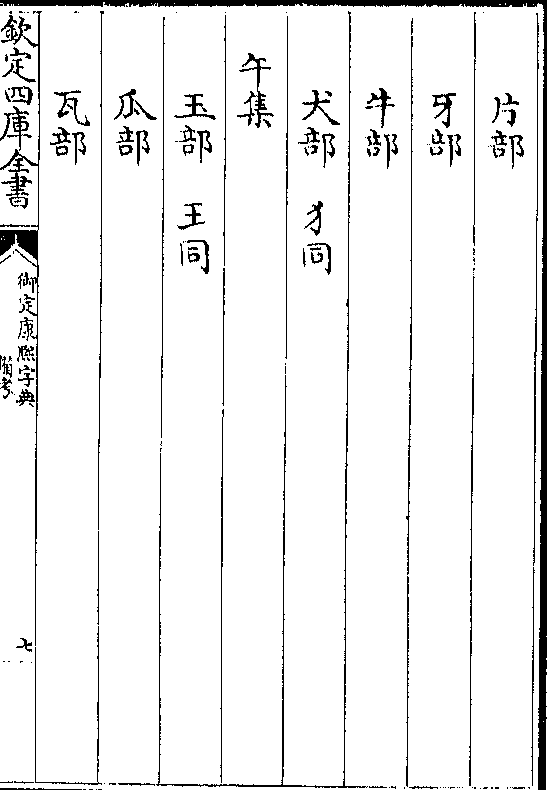 片部
牙部
牛部
犬部 犭同
午集
玉部 王同
瓜部
瓦部
欽定四庫全書
御定康熙字典
備考
七